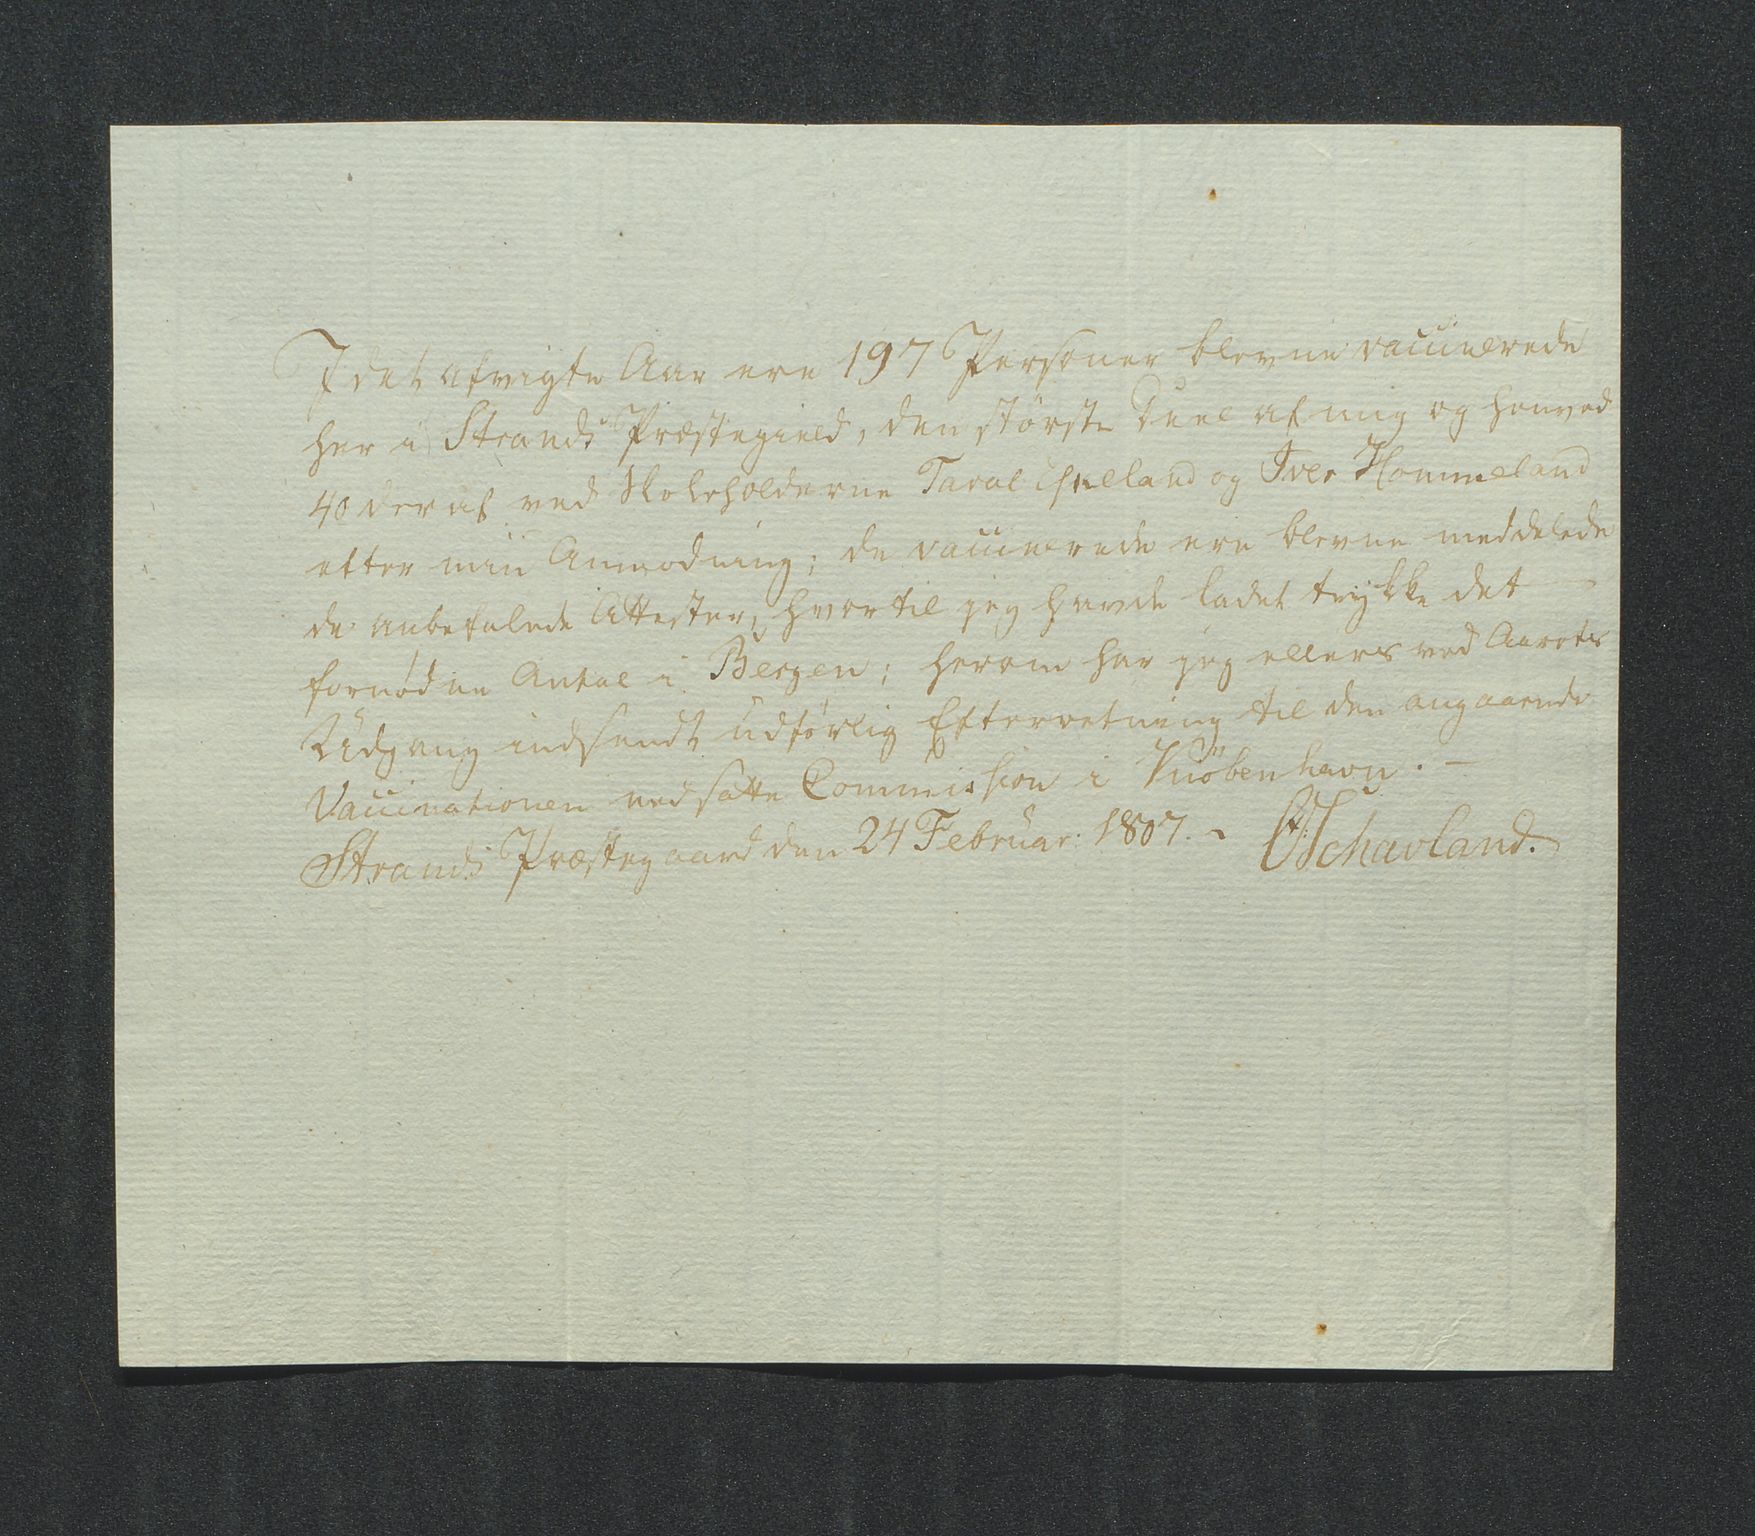 I det afvigte Aar ere 197 Personer blevne vaccinerede
her i Strands Præstegield, den største Deel af mig og henved
40 deraf ved Skoleholderne Taral og Iver Hommeland
efter min Anmodning; de vaccinerede ere blevne meddelede
de anbefalede Attester, hvortil jeg havde ladet trykke det
fornødne Antal i Bergen; herom har jeg ellers ved Aarets
Udgang indsendt udførlig Efterretning til den angaaende
Vaccinationen nedsatte Commission i Kiöbenhavn. —
Strands Præstegaard den 24 Februar: 1807. Schavland.